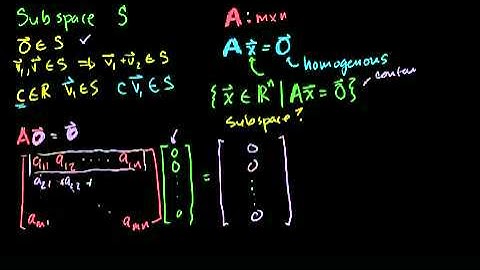 Subspace S
0⃗ ∈ S ✓
v⃗₁, v⃗ ∈ S ⇒ v⃗₁ + v⃗₂ ∈ S
c ∈ R v⃗₁ ∈ S c v⃗₁ ∈ S
A : m×n
A x⃗ = 0⃗
homogenous
{ x⃗ ∈ ℝⁿ | A x⃗ = 0⃗ }
subspace?
A 0⃗ = 0⃗
a₁₁ a₁₂ ⋯ a₁ₙ 0 0
a₂₁ a₂₂ 0 0
⋮ ⋮
aₘ₁ ⋯ aₘₙ 0 = 0